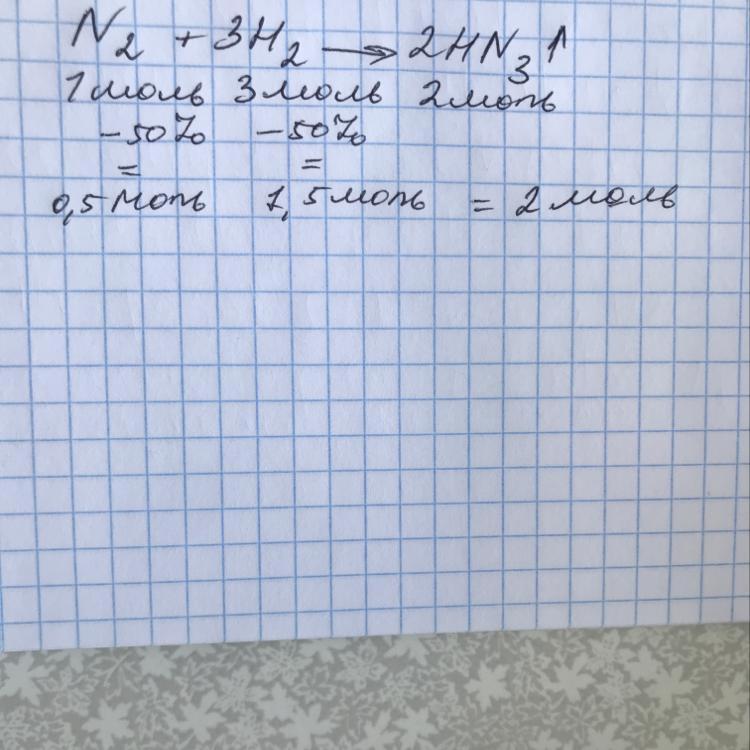 N₂ + 3H₂ → 2HN₃↑
1 моль 3 моль 2 моль
-50% -50%
= =
0,5 моль 1,5 моль = 2 моль